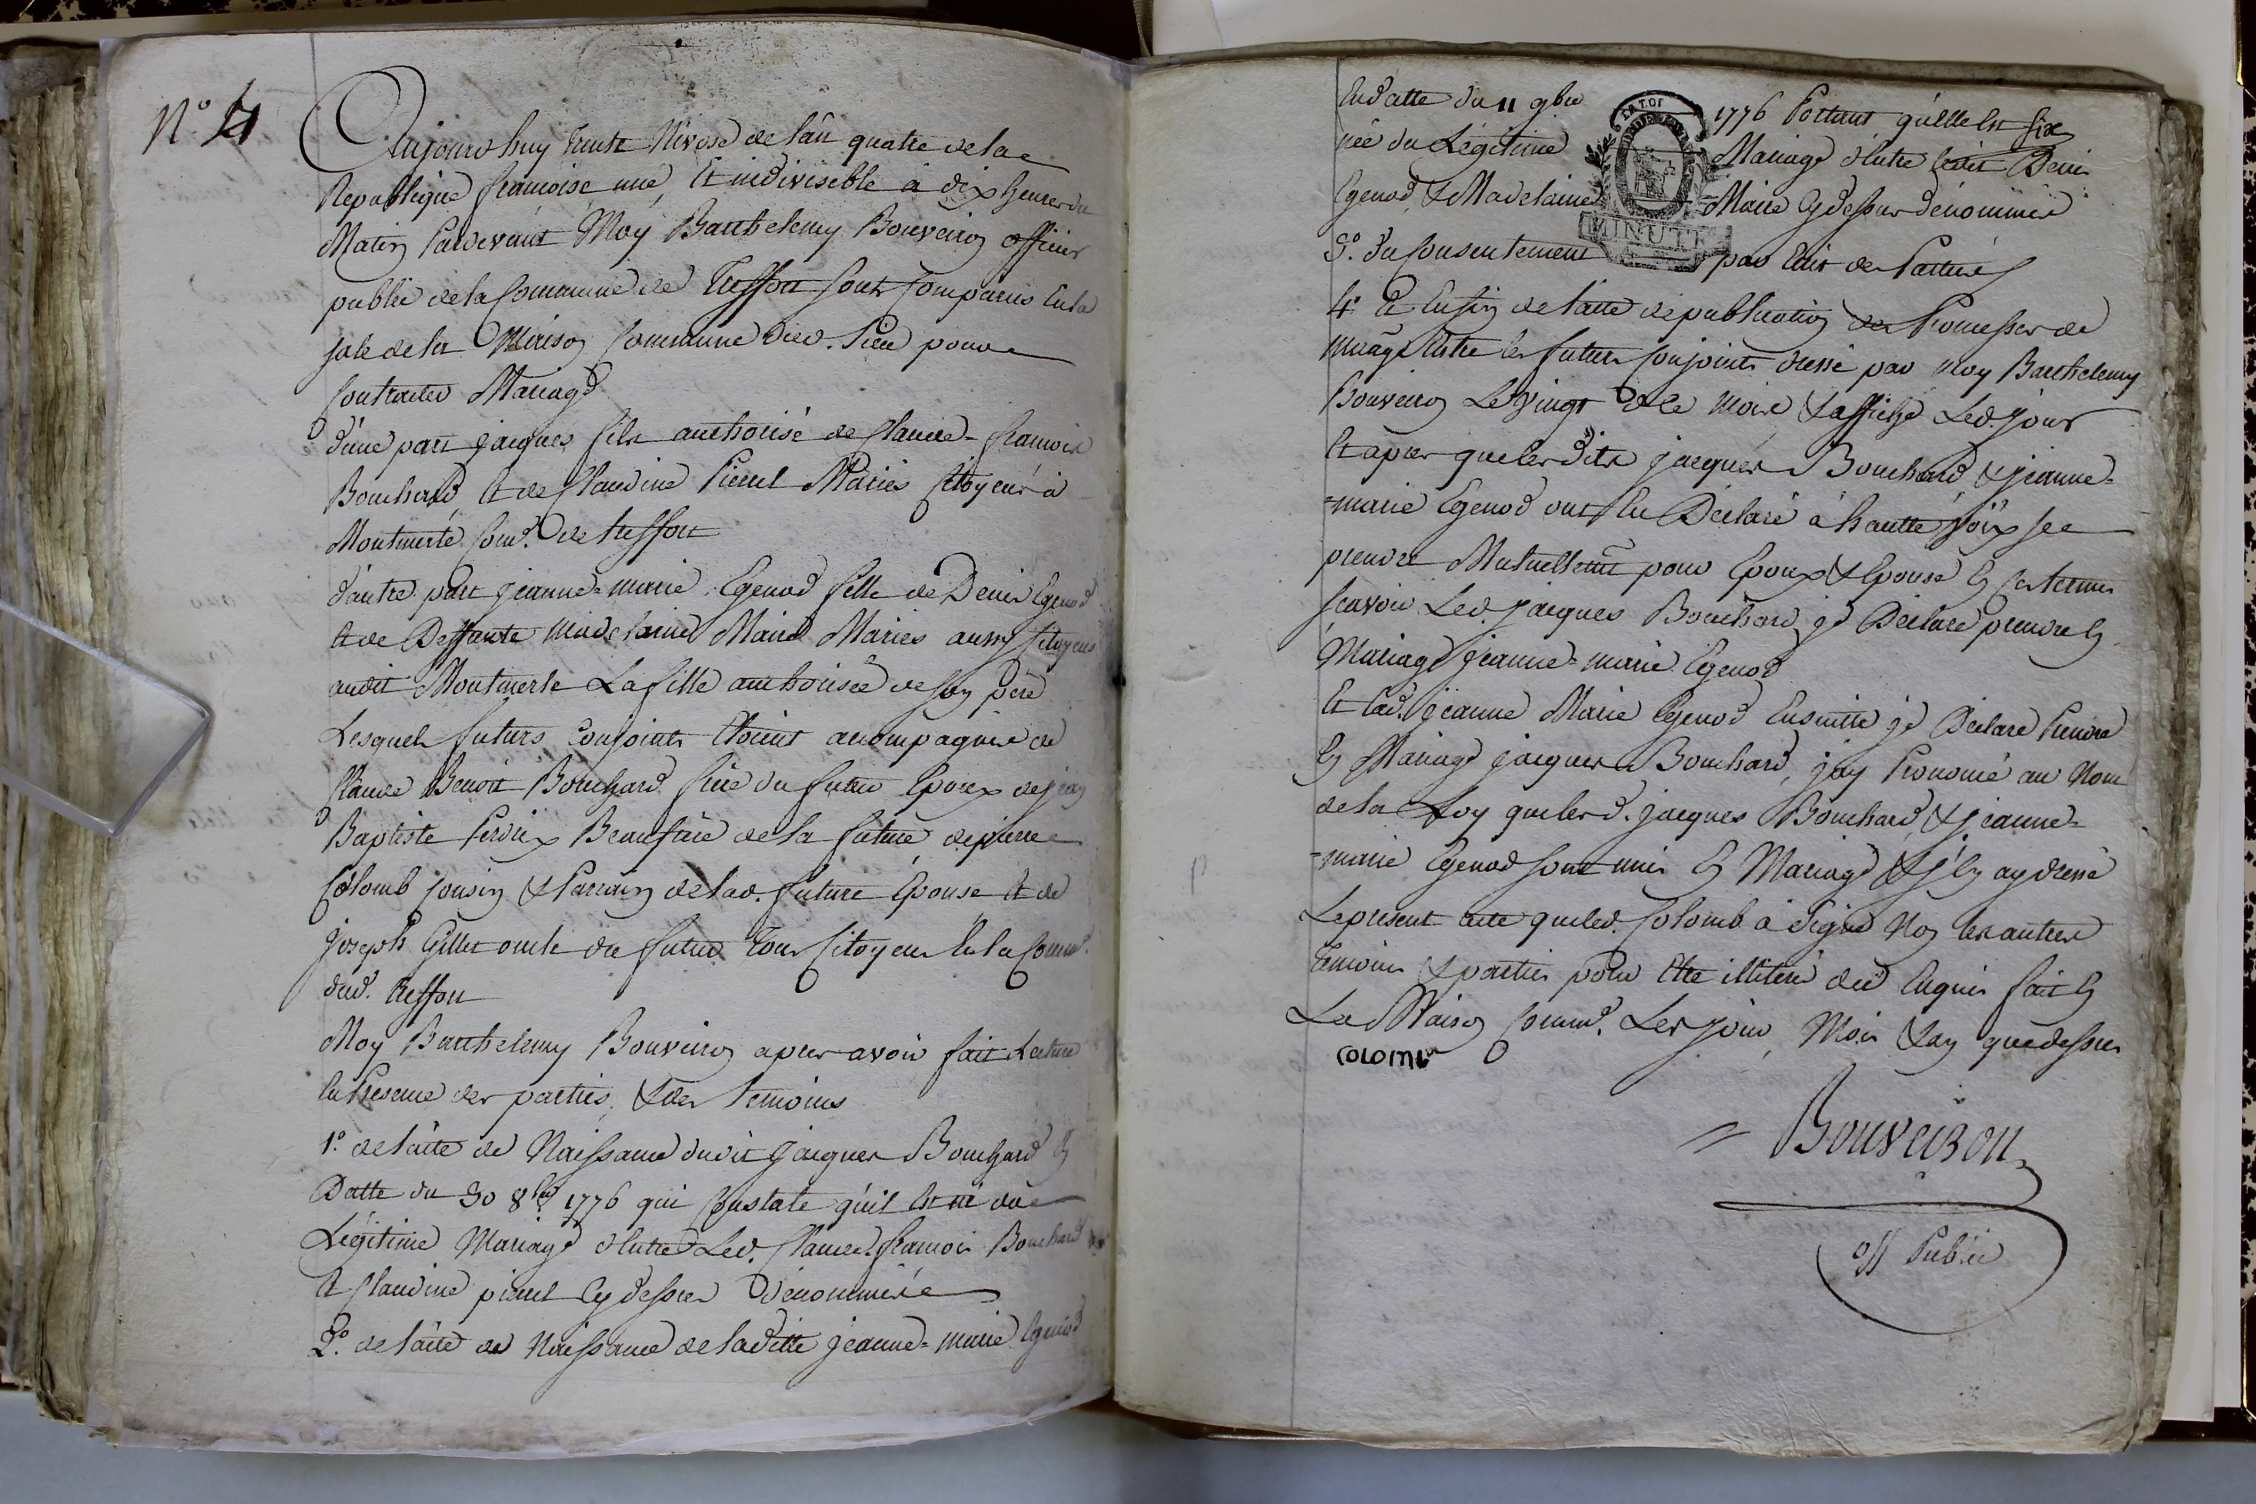 N° 4
Aujourdhuy trente Nivose de l'an quatre de la
Republique francoise une, Et indivisible a dix heures du
Matin Pardevant Moy Barthelemy Bouveiron officier
public de la Commune de Treffort sont Comparus En la
sale de la Maison Commune dud. Lieu pour
Contracter Mariage
d'une part jacques fils authorisé de Claude-francois
Bouchard Et de Claudine Pierel Mariés Citoyens à
Montmerle Comm. de treffort
d'autre part jeanne=marie Egenod fille de Denis Egenod
Et de Deffunte madelaine Maire Mariés aussy Citoyens
audit Montmerle La fille authorisée de son père
Lesquels futurs conjoints Etoient acompagnés de
Claude Benoit Bouchard frère du futur Epoux de jean
Baptiste Perdrix Beaufrère de la future de pierre
Colomb cousin & Parrain de lad. future Epouse Et de
joseph Gillet oncle du futur tous Citoyens En la Comm.
dud. treffort
Moy Barthelemy Bouveiron apres avoir fait Lecture
En Présence des parties & des temoins
1° de l'acte de Naissance dudit jacques Bouchard En
Datte du 30 8bre 1776 qui Constate qu'il Est né du
Légitime Mariage d'Entre Led. Claude francois Bouchard
Et Claudine pierel Cy dessus dénommés
2° de l'acte de Naissance de laditte jeanne=marie Egenod
En datte du 11 9bre 1776 Portant qu'elle Est
née du Légitime Mariage d'Entre ledit Denis
Egenod & Madelaine Maire Cy dessus dénommés
MINUTE
3° du Consentement par Ecrit des Parties
4° Et Enfin de l'acte de publication des Promesses de
mariage Entre les futurs Conjoints dressé par moy Barthelemy
Bouveiron Le vingt de ce mois & affiché Led. jour
Et apres que lesdits jacques Bouchard & jeanne=
=marie Egenod ont Eu Déclaré à hautte voix se
prendre Mutuellemt pour Epoux & Epouse En ces termes
scavoir Led. jacques Bouchard je Déclare prendre En
Mariage jeanne=marie Egenod
Et lad. jeanne Marie Egenod Ensuitte je Déclare Prendre
En Mariage jacques Bouchard, jay Prononcé au Nom
de la Loy que lesd. jacques Bouchard & jeanne=
=marie Egenod sont unis En Mariage & j'En ay dressé
Le present acte que led. Colomb à Signé Non les autres
temoins & parties pour Etre illiterés de ce Enquis fait En
La Maison Comm. Les jour, Mois & an que dessus
COLOMB
Bouveiron
off Public